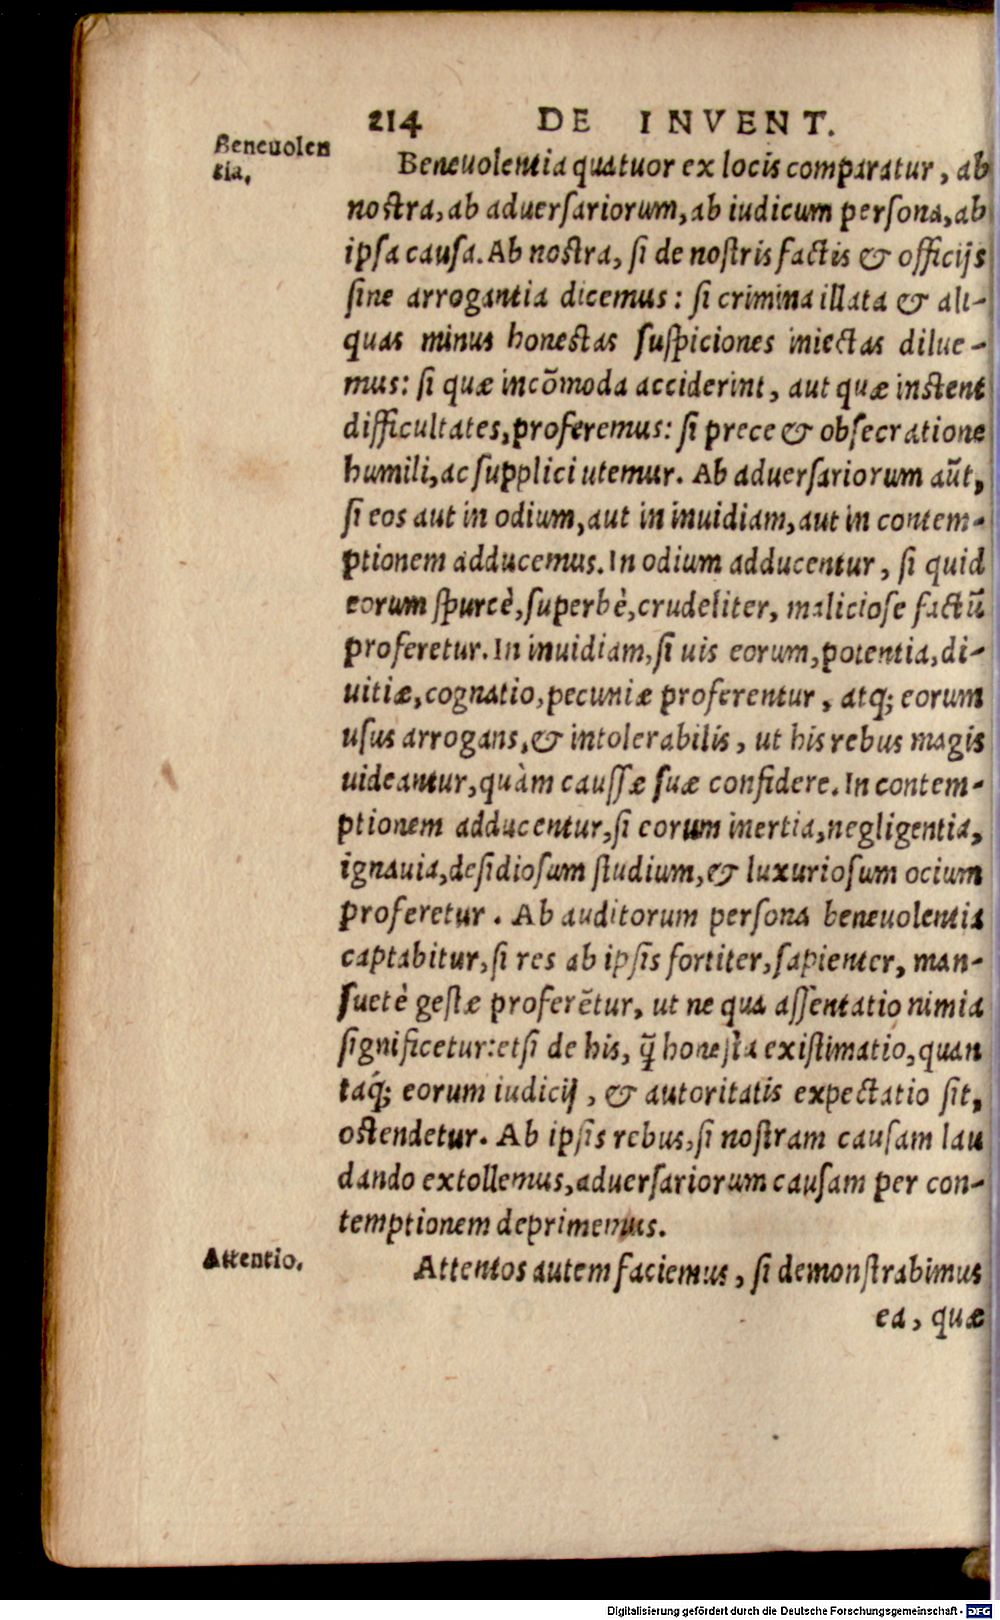 214 DE INVENT.
Beneuolen
tia.
Beneuolentia quatuor ex locis comparatur, ab
nostra, ab aduersariorum, ab iudicum persona, ab
ipsa causa. Ab nostra, si de nostris factis & officijs
sine arrogantia dicemus: si crimina illata & ali-
quas minus honestas suspiciones iniectas dilue-
mus: si quæ incōmoda acciderint, aut quæ instent
difficultates, proferemus: si prece & obsecratione
humili, ac supplici utemur. Ab aduersariorum aūt,
si eos aut in odium, aut in inuidiam, aut in contem-
ptionem adducemus. In odium adducentur, si quid
eorum spurcè, superbè, crudeliter, maliciose factū
proferetur. In inuidiam, si uis eorum, potentia, di-
uitiæ, cognatio, pecuniæ proferentur, atq; eorum
usus arrogans, & intolerabilis, ut his rebus magis
uideantur, quàm caussæ suæ confidere. In contem-
ptionem adducentur, si eorum inertia, negligentia,
ignauia, desidiosum studium, & luxuriosum ocium
proferetur. Ab auditorum persona beneuolentia
captabitur, si res ab ipsis fortiter, sapienter, man-
suetè gestæ proferētur, ut ne qua assentatio nimia
significetur: etsi de his, q̃ honesta existimatio, quan
taq́; eorum iudicij, & autoritatis expectatio sit,
ostendetur. Ab ipsis rebus, si nostram causam lau
dando extollemus, aduersariorum causam per con-
temptionem deprimemus.
Attentio.
Attentos autem faciemus, si demonstrabimus
ea, quæ
Digitalisierung gefördert durch die Deutsche Forschungsgemeinschaft - DFG